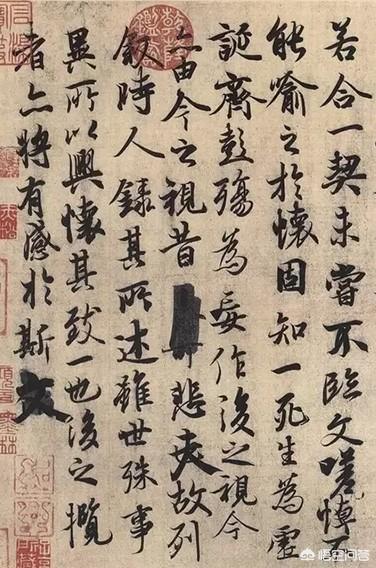 若合一契未嘗不臨文嗟悼不
能喻之於懷固知一死生為虛
誕齊彭殤為妄作後之視今
亦由今之視昔悲夫故列
叙時人錄其所述雖世殊事
異所以興懷其致一也後之攬
者亦將有感於斯文
悟空问答